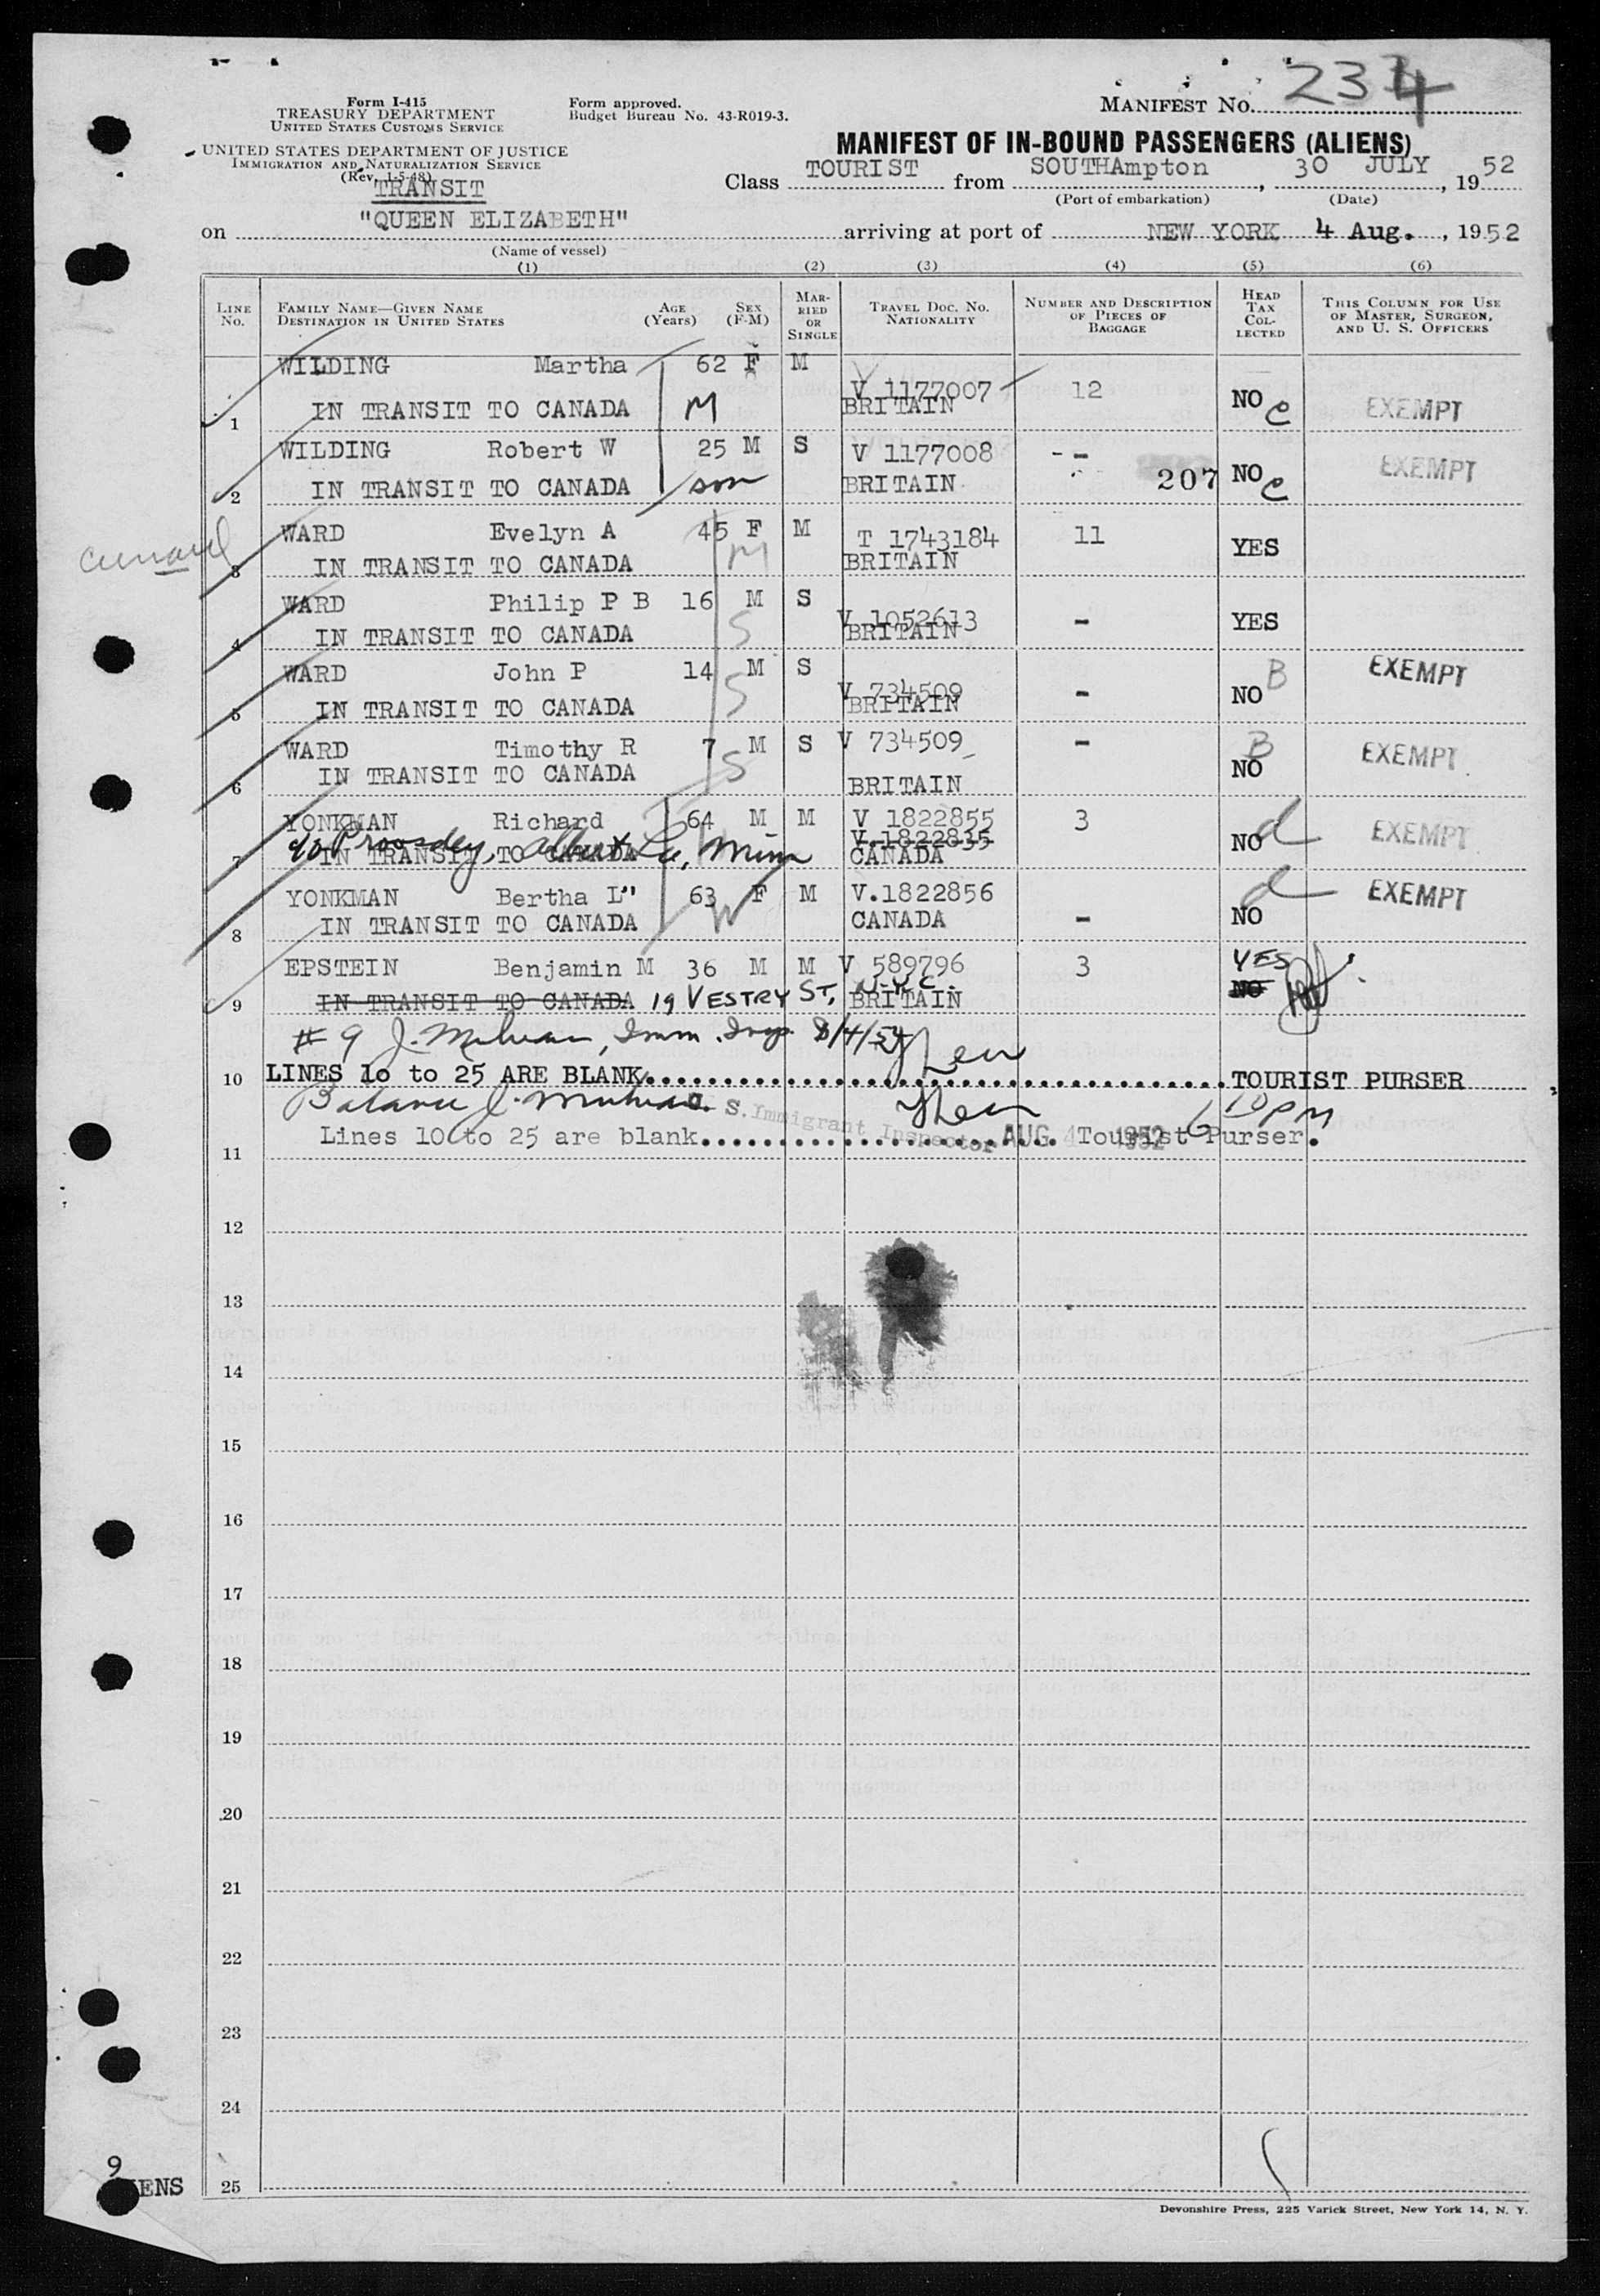 Form I-415
TREASURY DEPARTMENT
UNITED STATES CUSTOMS SERVICE
UNITED STATES DEPARTMENT OF JUSTICE
IMMIGRATION AND NATURALIZATION SERVICE
(Rev. 1-5-48)
TRANSIT
Form approved.
Budget Bureau No. 43-R019-3.
MANIFEST No. 234
MANIFEST OF IN-BOUND PASSENGERS (ALIENS)
Class TOURIST from SOUTHAmpton, 30 JULY, 1952
(Port of embarkation) (Date)
on "QUEEN ELIZABETH" arriving at port of NEW YORK 4 Aug., 1952
(Name of vessel)
(1) (2) (3) (4) (5) (6)
LINE No. FAMILY NAME—GIVEN NAME DESTINATION IN UNITED STATES AGE (Years) SEX (F-M) MARRIED OR SINGLE TRAVEL DOC. NO. NATIONALITY NUMBER AND DESCRIPTION OF PIECES OF BAGGAGE HEAD TAX COLLECTED THIS COLUMN FOR USE OF MASTER, SURGEON, AND U. S. OFFICERS
WILDING Martha 62 F M V 1177007 12
1 IN TRANSIT TO CANADA M BRITAIN NO c EXEMPT
WILDING Robert W 25 M S V 1177008 --
2 IN TRANSIT TO CANADA son BRITAIN 207 NO c EXEMPT
Cunard
WARD Evelyn A 45 F M T 1743184 11
3 IN TRANSIT TO CANADA M BRITAIN YES
WARD Philip P B 16 M S V 1052613
4 IN TRANSIT TO CANADA S BRITAIN - YES
WARD John P 14 M S V 734509 B EXEMPT
5 IN TRANSIT TO CANADA S BRITAIN - NO
WARD Timothy R 7 M S V 734509 - B EXEMPT
6 IN TRANSIT TO CANADA S BRITAIN NO
YONKMAN Richard 64 M M V 1822855 3
V.1822835
7 IN TRANSIT TO CANADA CANADA NO d EXEMPT
Albert Lea, Minn
YONKMAN Bertha L" 63 F M V.1822856 d EXEMPT
8 IN TRANSIT TO CANADA W CANADA - NO
EPSTEIN Benjamin M 36 M M V 589796 3 YES
9 IN TRANSIT TO CANADA 19 VESTRY ST, N.Y.C. BRITAIN NO
# 9 J. Imm. Insp. 8/4/52
10 LINES 10 to 25 ARE BLANK TOURIST PURSER
Balance J.
U. S. Immigrant Inspector AUG 4 1952 6 10 PM
Lines 10 to 25 are blank Tourist Purser.
11
12
13
14
15
16
17
18
19
20
21
22
23
24
25
9
Devonshire Press, 225 Varick Street, New York 14, N. Y.